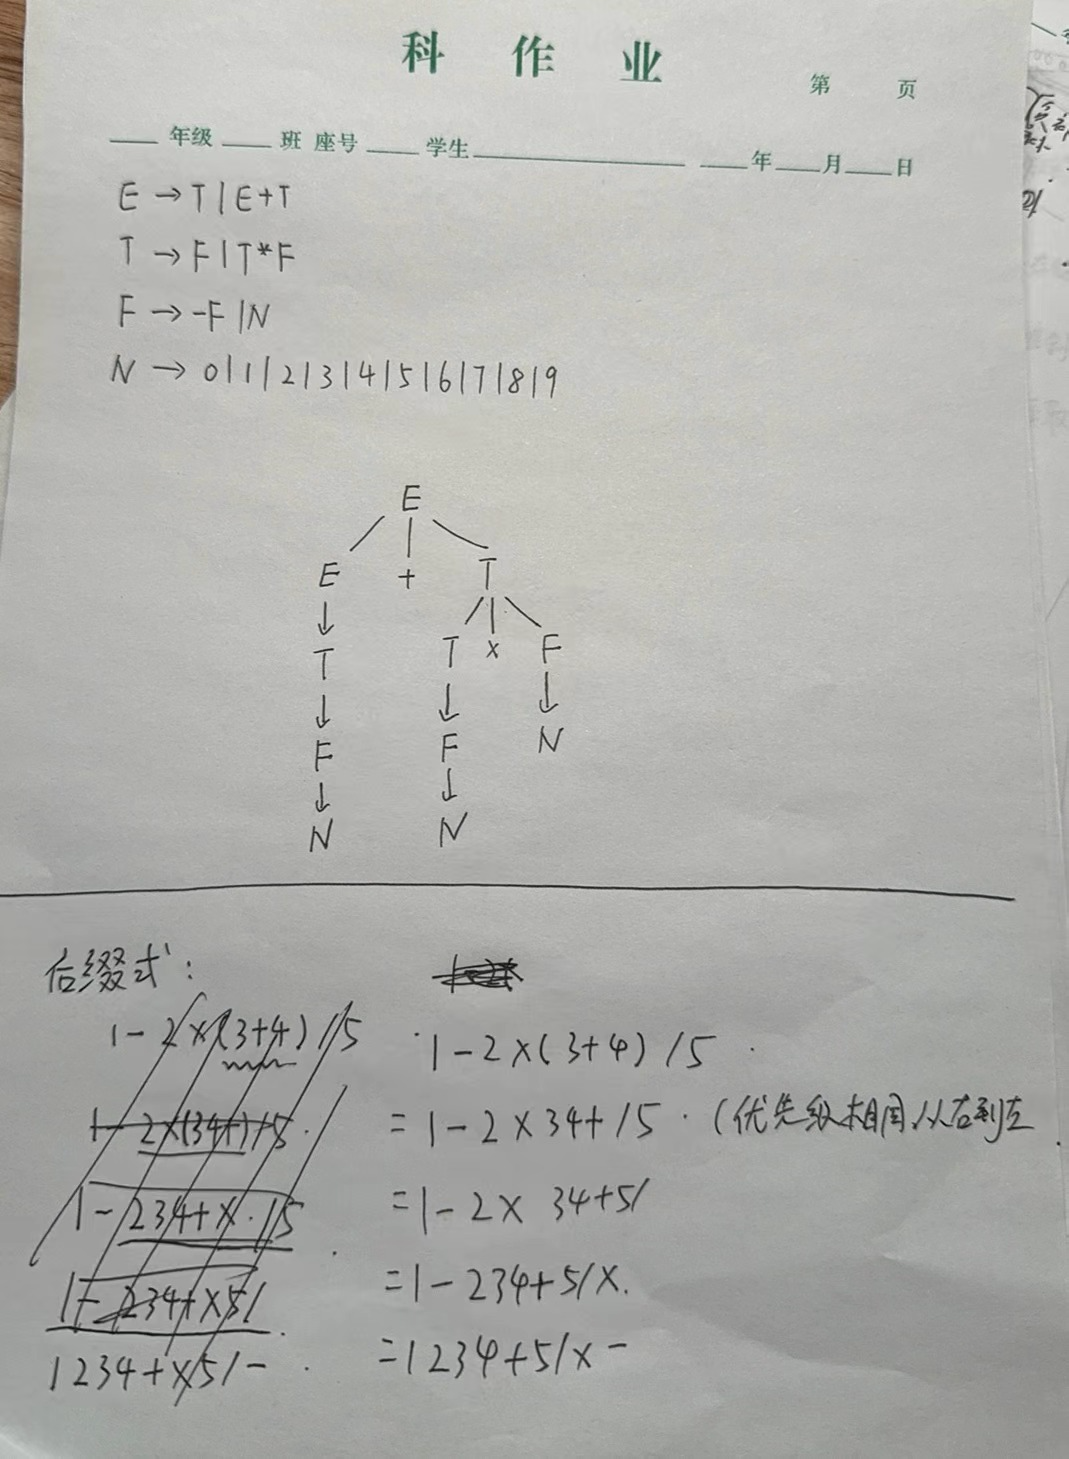 科 作 业
第 页
年级 班 座号 学生 年 月 日
E → T | E+T
T → F | T*F
F → -F | N
N → 0|1|2|3|4|5|6|7|8|9
E
E + T
T T × F
F F N
N N
后缀式:
1-2×(3+4)/5
1-2×(34+)/5
1-234+×/5
1-234+×5/
1234+×5/-
1-2×(3+4)/5
=1-2×34+/5 (优先级相同从右到左
=1-2× 34+5/
=1-234+5/×
=1234+5/×-